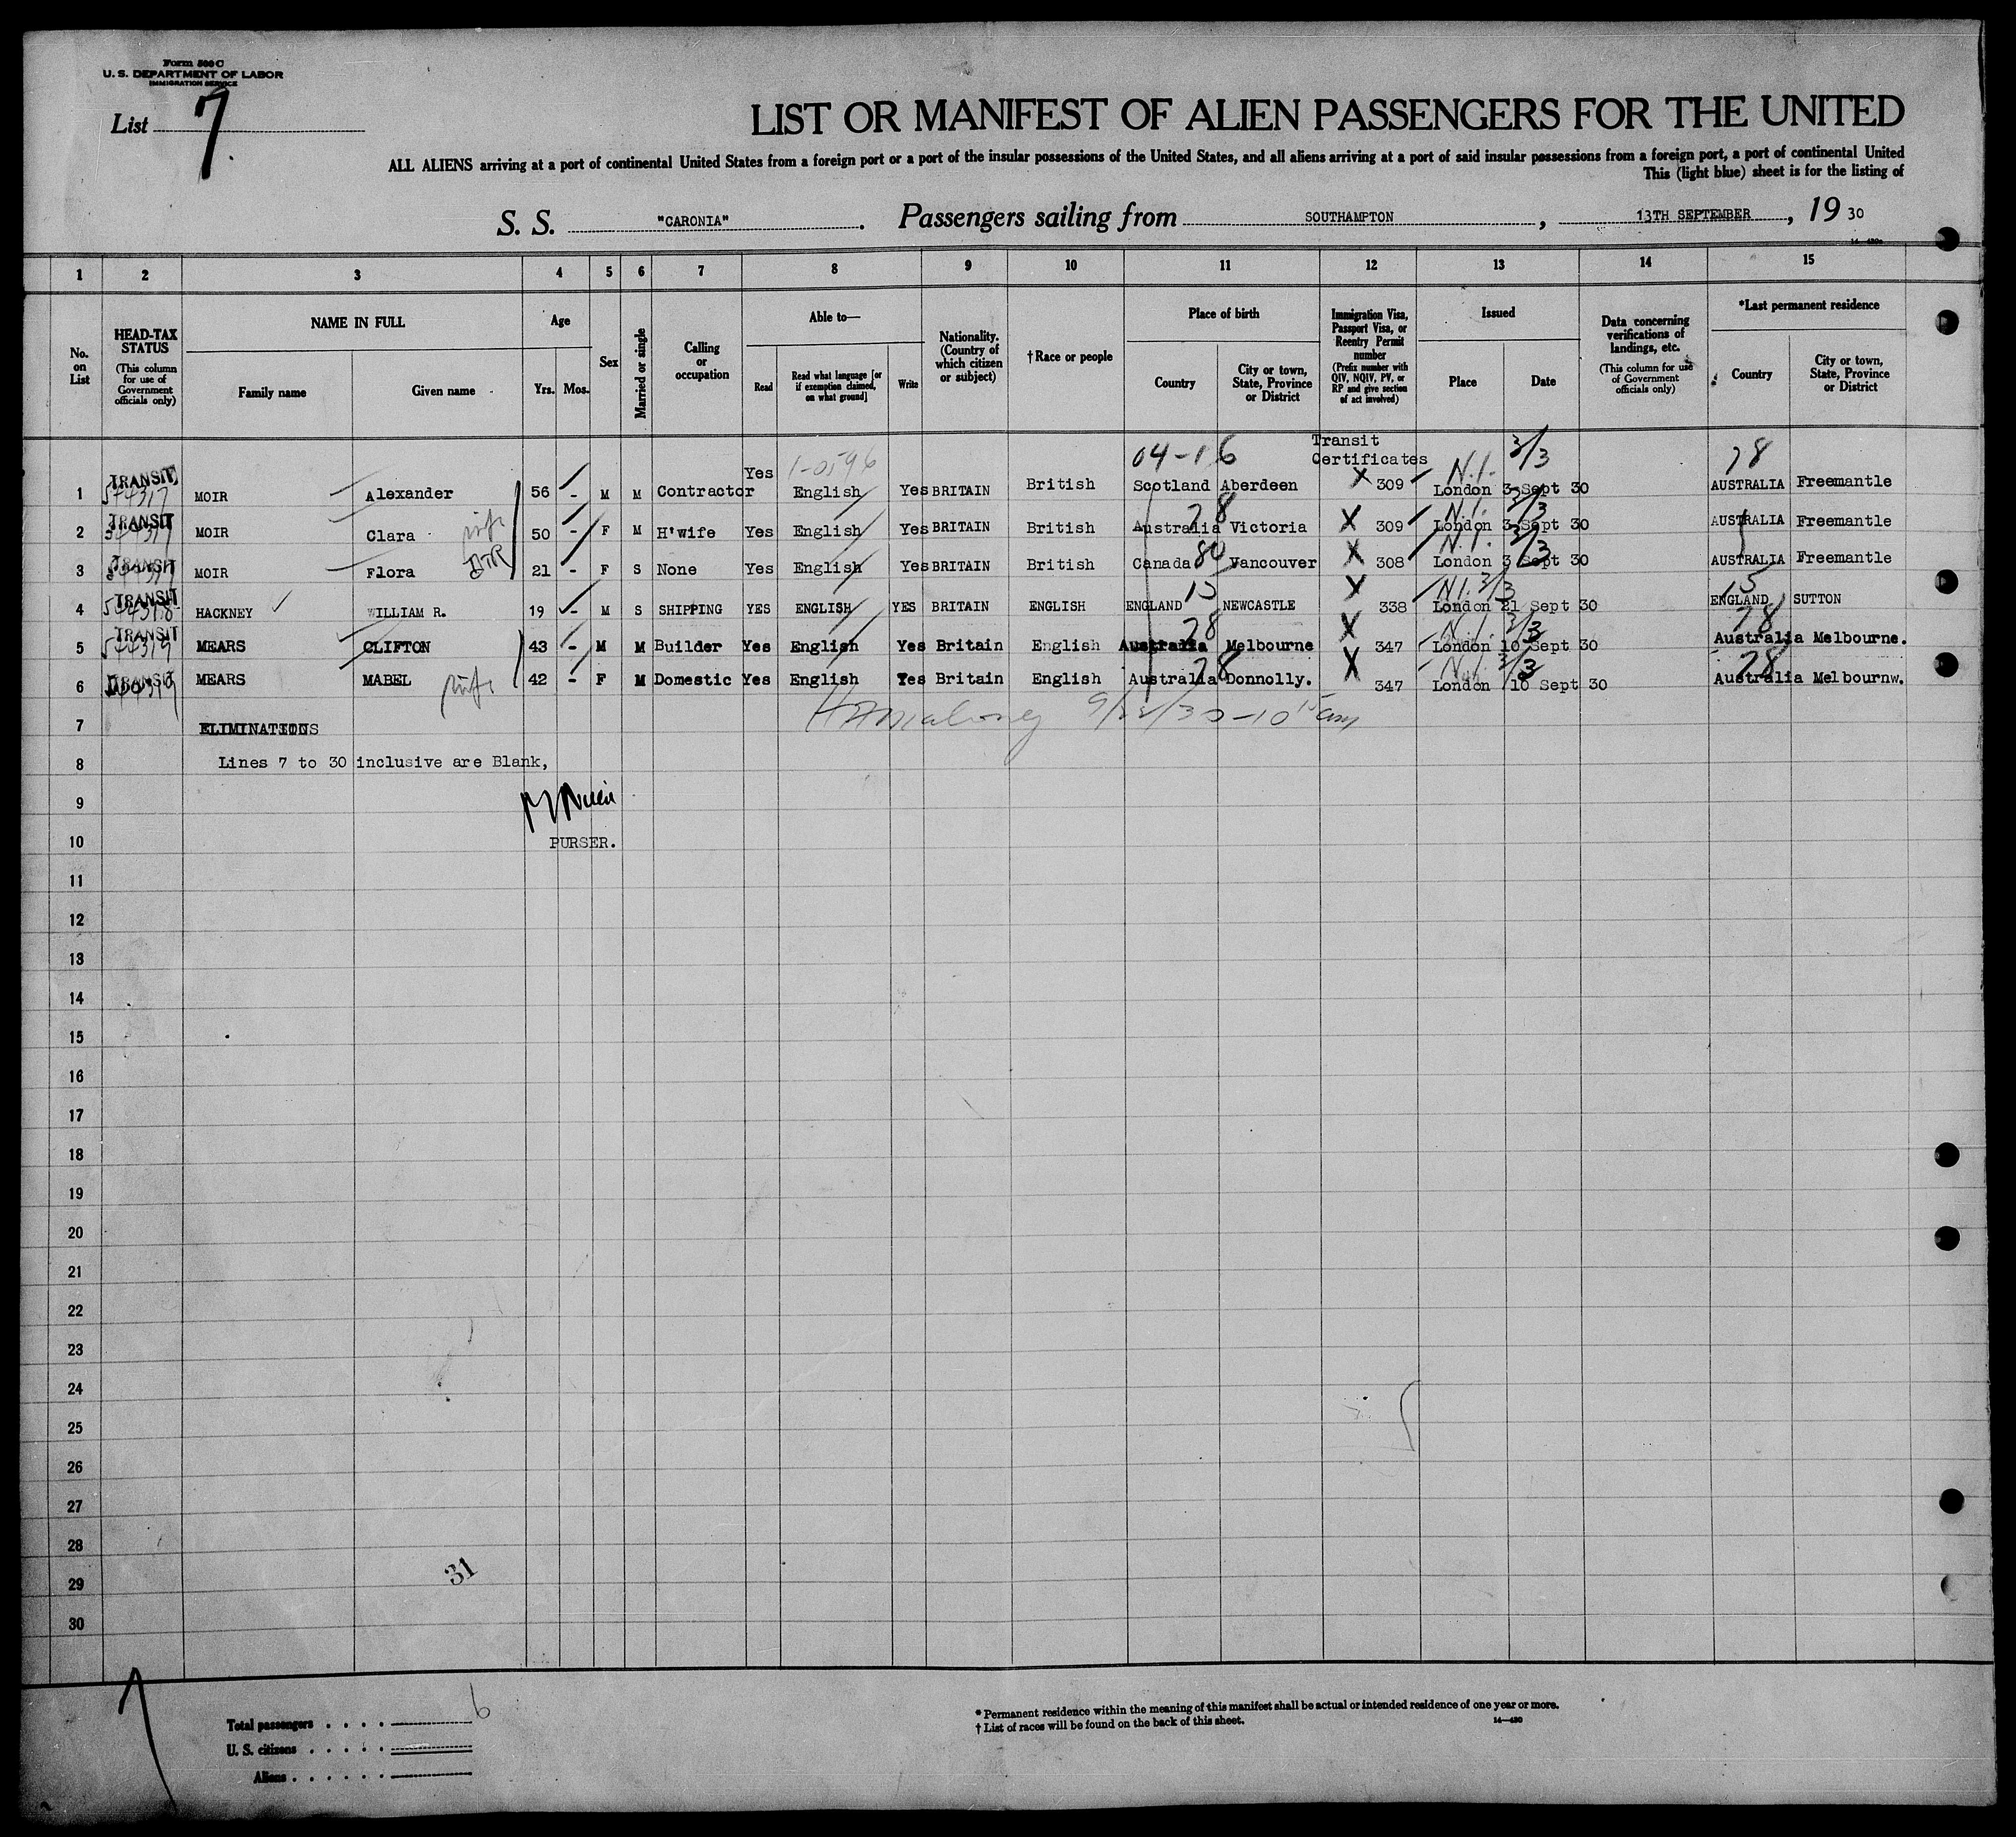 Form 500 C
U. S. DEPARTMENT OF LABOR
IMMIGRATION SERVICE
List 7.
LIST OR MANIFEST OF ALIEN PASSENGERS FOR THE UNITED
ALL ALIENS arriving at a port of continental United States from a foreign port or a port of the insular possessions of the United States, and all aliens arriving at a port of said insular possessions from a foreign port, a port of continental United
This (light blue) sheet is for the listing of
S. S. "CARONIA". Passengers sailing from SOUTHAMPTON, 13TH SEPTEMBER, 19 30
1 2 3 4 5 6 7 8 9 10 11 12 13 14 15
No. on List
HEAD-TAX STATUS (This column for use of Government officials only)
NAME IN FULL
Family name
Given name
Age
Yrs. Mos.
Sex
Married or single
Calling or occupation
Able to—
Read
Read what language [or if exemption claimed, on what ground]
Write
Nationality. (Country of which citizen or subject)
†Race or people
Place of birth
Country
City or town, State, Province or District
Immigration Visa, Passport Visa, or Reentry Permit number (Prefix number with QIV, NQIV, PV, or RP and give section of act involved)
Issued
Place
Date
Data concerning verifications of landings, etc. (This column for use of Government officials only)
*Last permanent residence
Country
City or town, State, Province or District
04-16 Transit Certificates 3/3 28
1 TRANSIT 544317 MOIR Alexander 56 - M M Contractor Yes English Yes BRITAIN British Scotland Aberdeen X 309 N.I. London 3 Sept 30 AUSTRALIA Freemantle
2 TRANSIT MOIR Clara wife 50 - F M H'wife Yes English Yes BRITAIN British Australia 28 Victoria X 309 N.I. London 3 Sept 30 3/3 AUSTRALIA Freemantle
3 TRANSIT MOIR Flora DTR 21 - F S None Yes English Yes BRITAIN British Canada 80 Vancouver X 308 N.I. London 3 Sept 30 3/3 AUSTRALIA Freemantle
4 TRANSIT 544318 HACKNEY WILLIAM R. 19 - M S SHIPPING YES ENGLISH YES BRITAIN ENGLISH ENGLAND 15 NEWCASTLE X 338 N.I. 3/3 London 21 Sept 30 15 ENGLAND SUTTON
5 TRANSIT 544319 MEARS CLIFTON 43 - M M Builder Yes English Yes Britain English Australia 28 Melbourne X 347 N.I. 3/3 London 10 Sept 30 28 Australia Melbourne.
6 TRANSIT MEARS MABEL wife 42 - F M Domestic Yes English Yes Britain English Australia 28 Donnolly. X 347 N.I. 3/3 London 10 Sept 30 28 Australia Melbournw.
7 ELIMINATIONS
8 Lines 7 to 30 inclusive are Blank,
9
10 PURSER.
11
12
13
14
15
16
17
18
19
20
21
22
23
24
25
26
27
28
29
30
31
Total passengers . . . . 6
U. S. citizens . . . . .
Aliens . . . . . .
* Permanent residence within the meaning of this manifest shall be actual or intended residence of one year or more.
† List of races will be found on the back of this sheet.
14—430